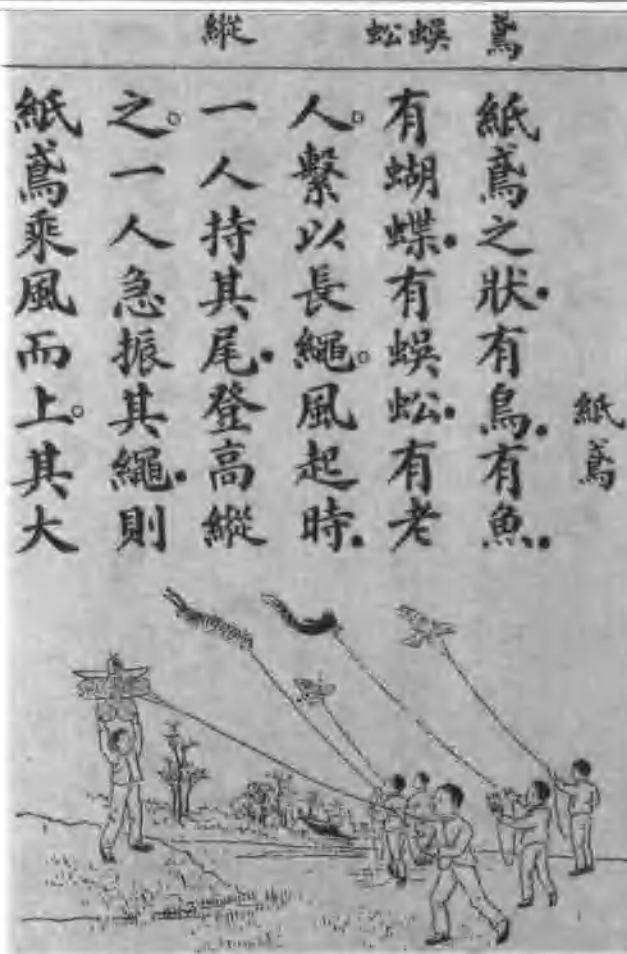 鳶 蜈蚣 縱
紙鳶
紙鳶之狀.有鳥.有魚.
有蝴蝶.有蜈蚣.有老
人。繫以長繩。風起時.
一人持其尾.登高縱
之。一人急振其繩.則
紙鳶乘風而上。其大